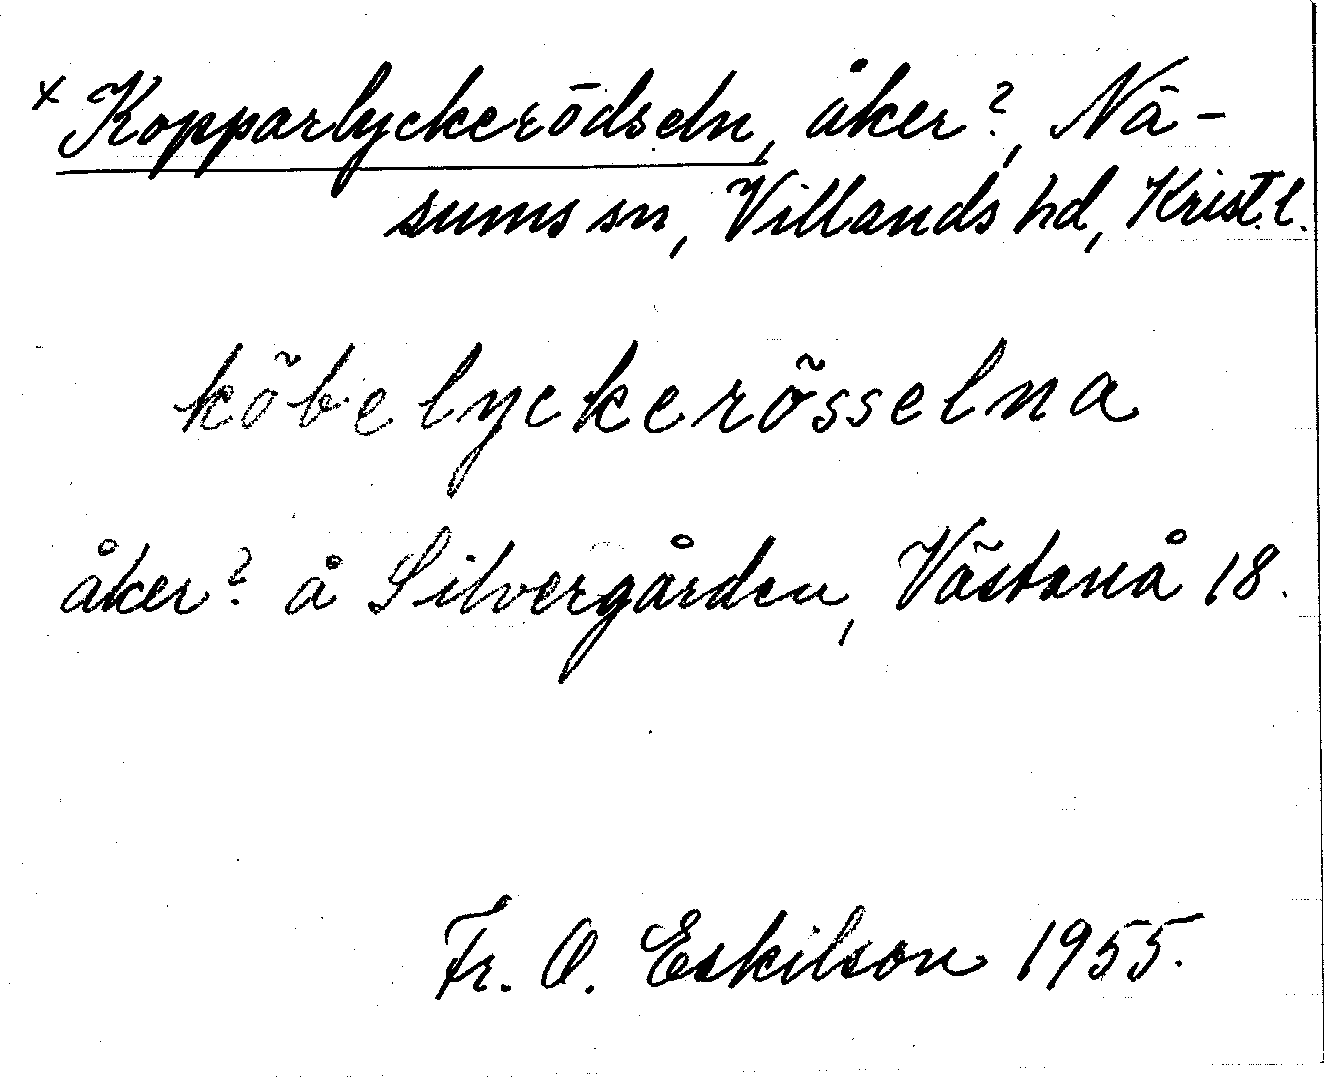 x Kopparlyckerödseln, åker?, Nä-
sums sn, Villands hd, Krist. l.
köbelyckerösselna
åker? å Silvergården, Västanå 18.
Fr. O. Eskilson 1955.